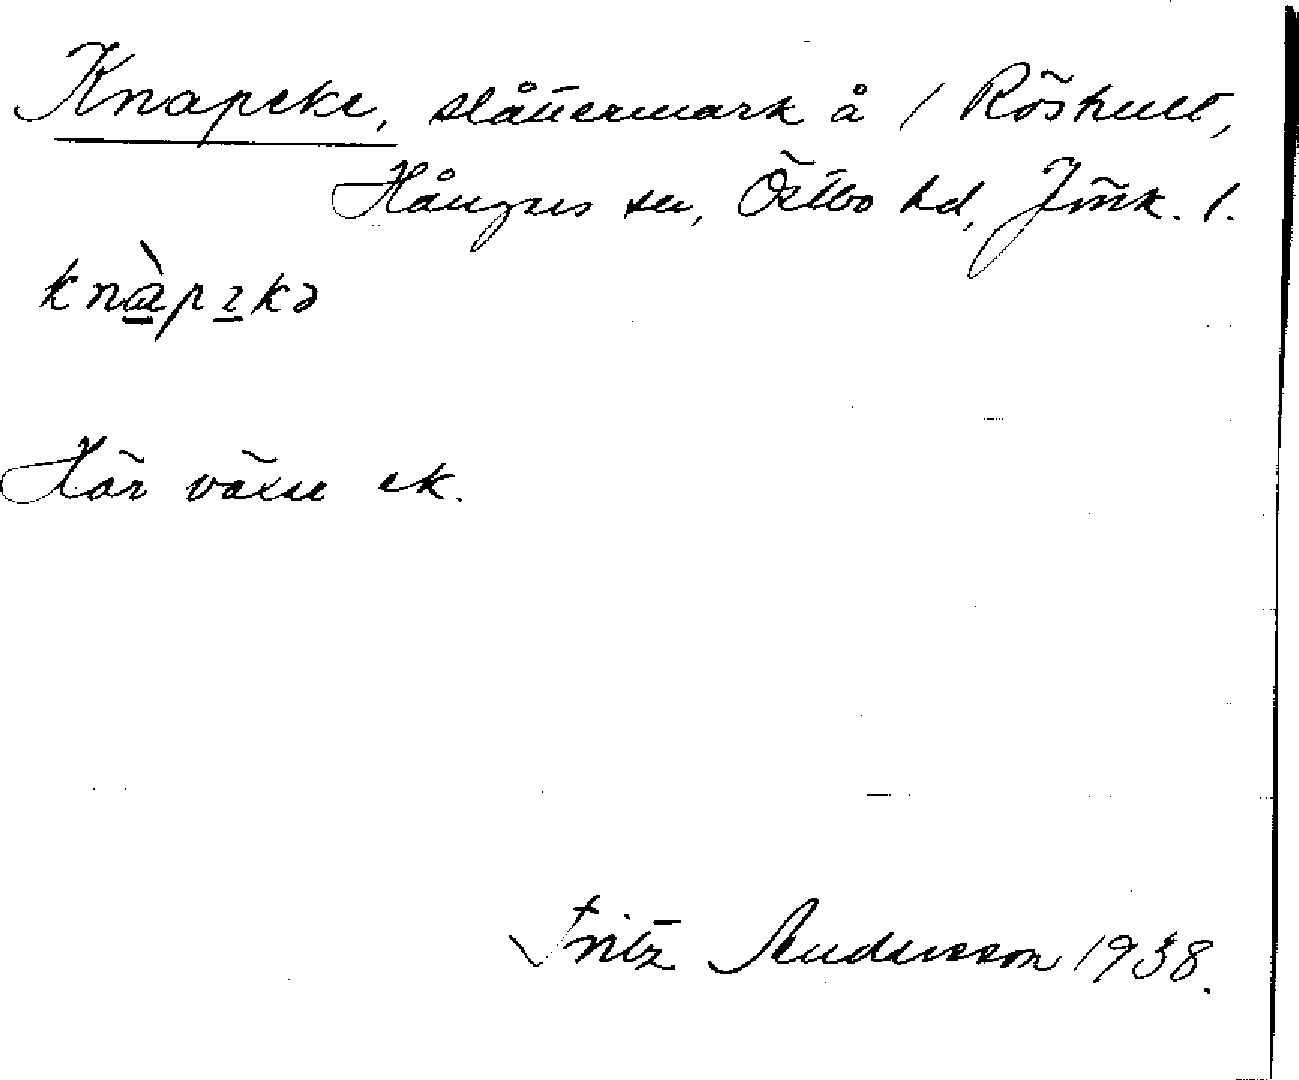 Knapeke, slåttermark å 1 Röshult,
Hångers sn, Östbo hd, Jönk. l.
knàpɩkə
Här växer ek.
Fritz Andersson 1938.